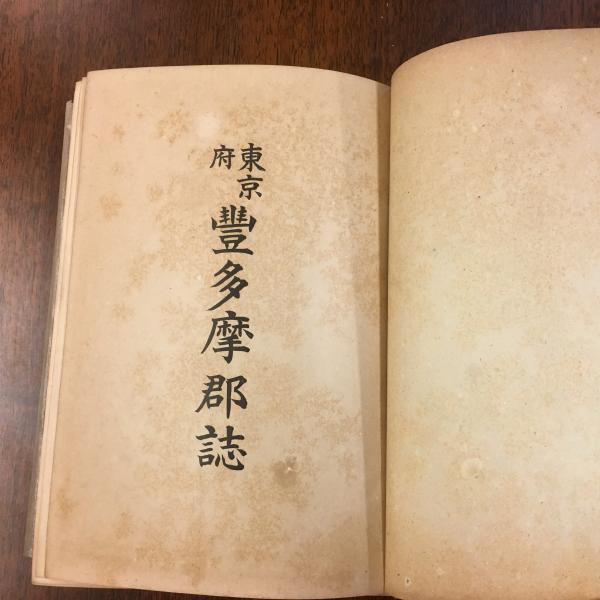 東京府
豐多摩郡誌